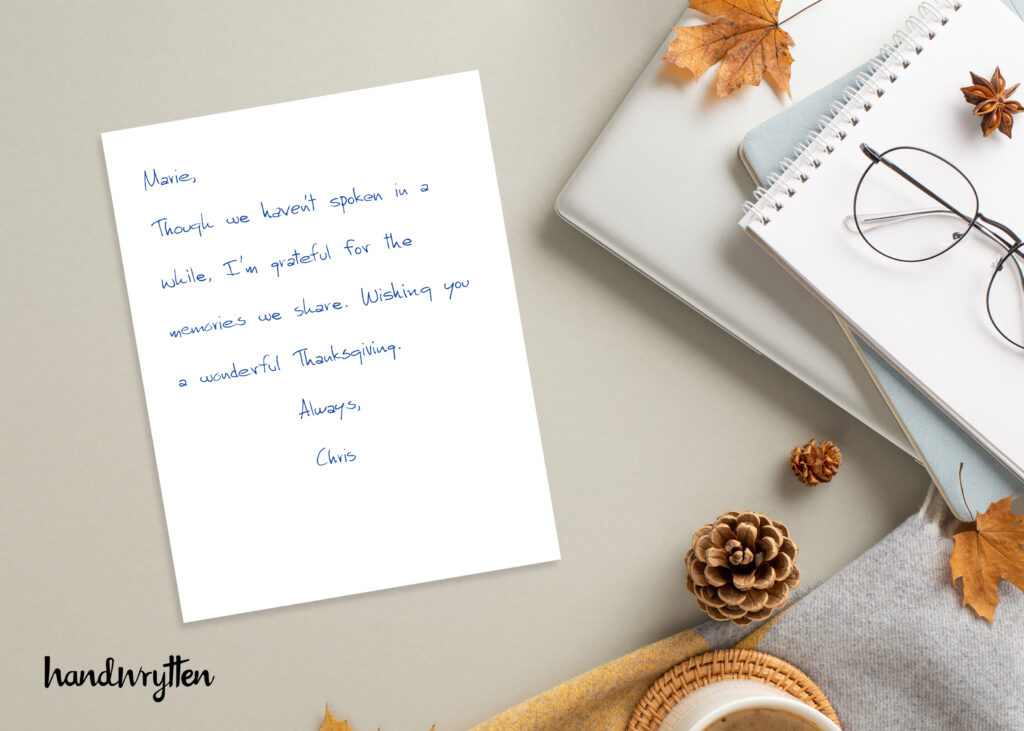 Marie,
Though we haven't spoken in a
while, I'm grateful for the
memories we share. Wishing you
a wonderful Thanksgiving.
Always,
Chris
handwrytten